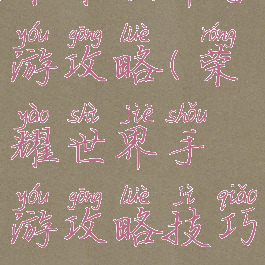 yóu gōng lüè róng
游攻略(荣
yào shì jiè shǒu
耀世界手
yóu gōng lüè jì qiǎo
游攻略技巧